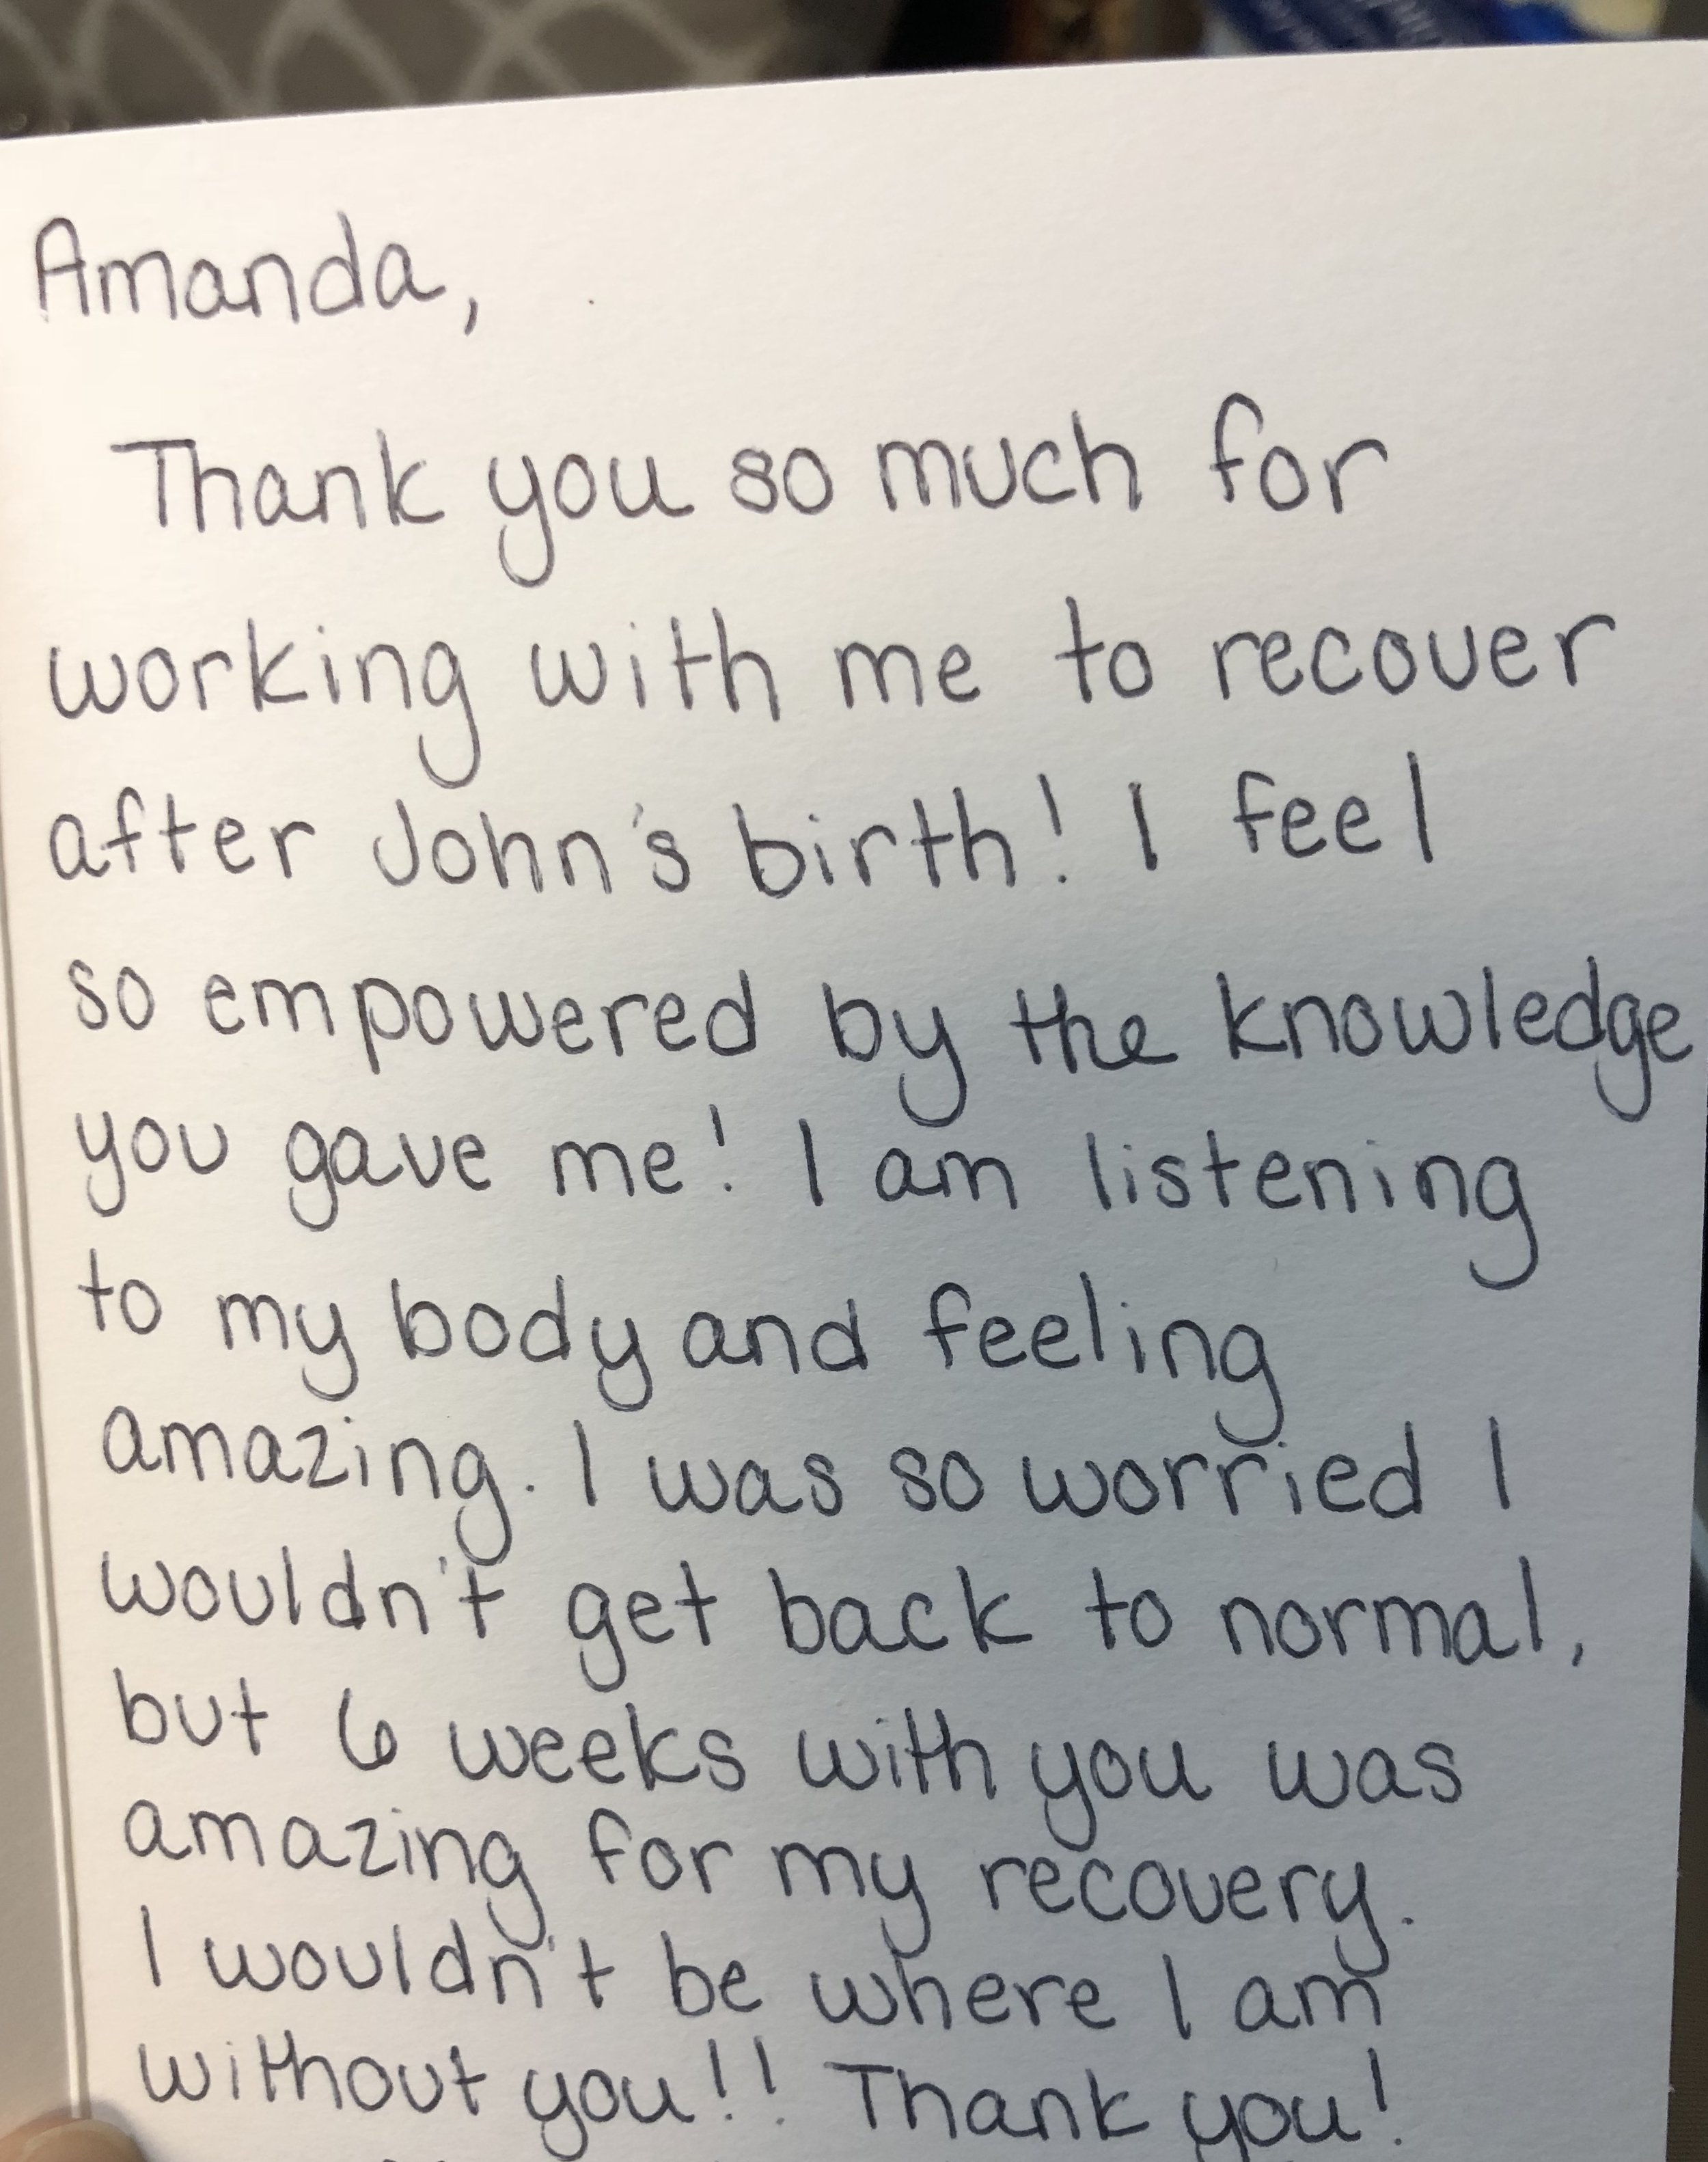 Amanda,
Thank you so much for
working with me to recover
after John's birth! I feel
so empowered by the knowledge
you gave me! I am listening
to my body and feeling
amazing. I was so worried I
wouldn't get back to normal,
but 6 weeks with you was
amazing for my recovery.
I wouldn't be where I am
without you!! Thank you!